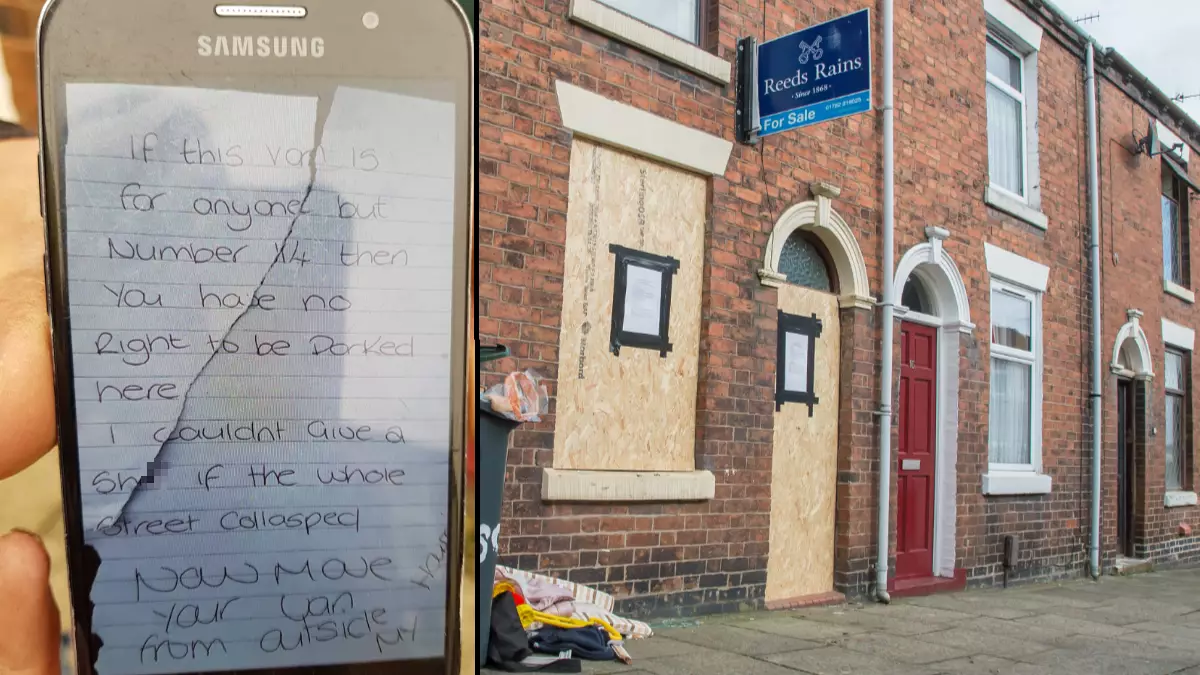 SAMSUNG
If this van is
for anyone but
Number 14 then
You have no
Right to be Parked
here
I couldnt Give a
Sh if the whole
Street Collasped
Now Move
your van
from outside MY
House
Reeds Rains
· Since 1868 ·
For Sale
01782 818625
SterlingOSB